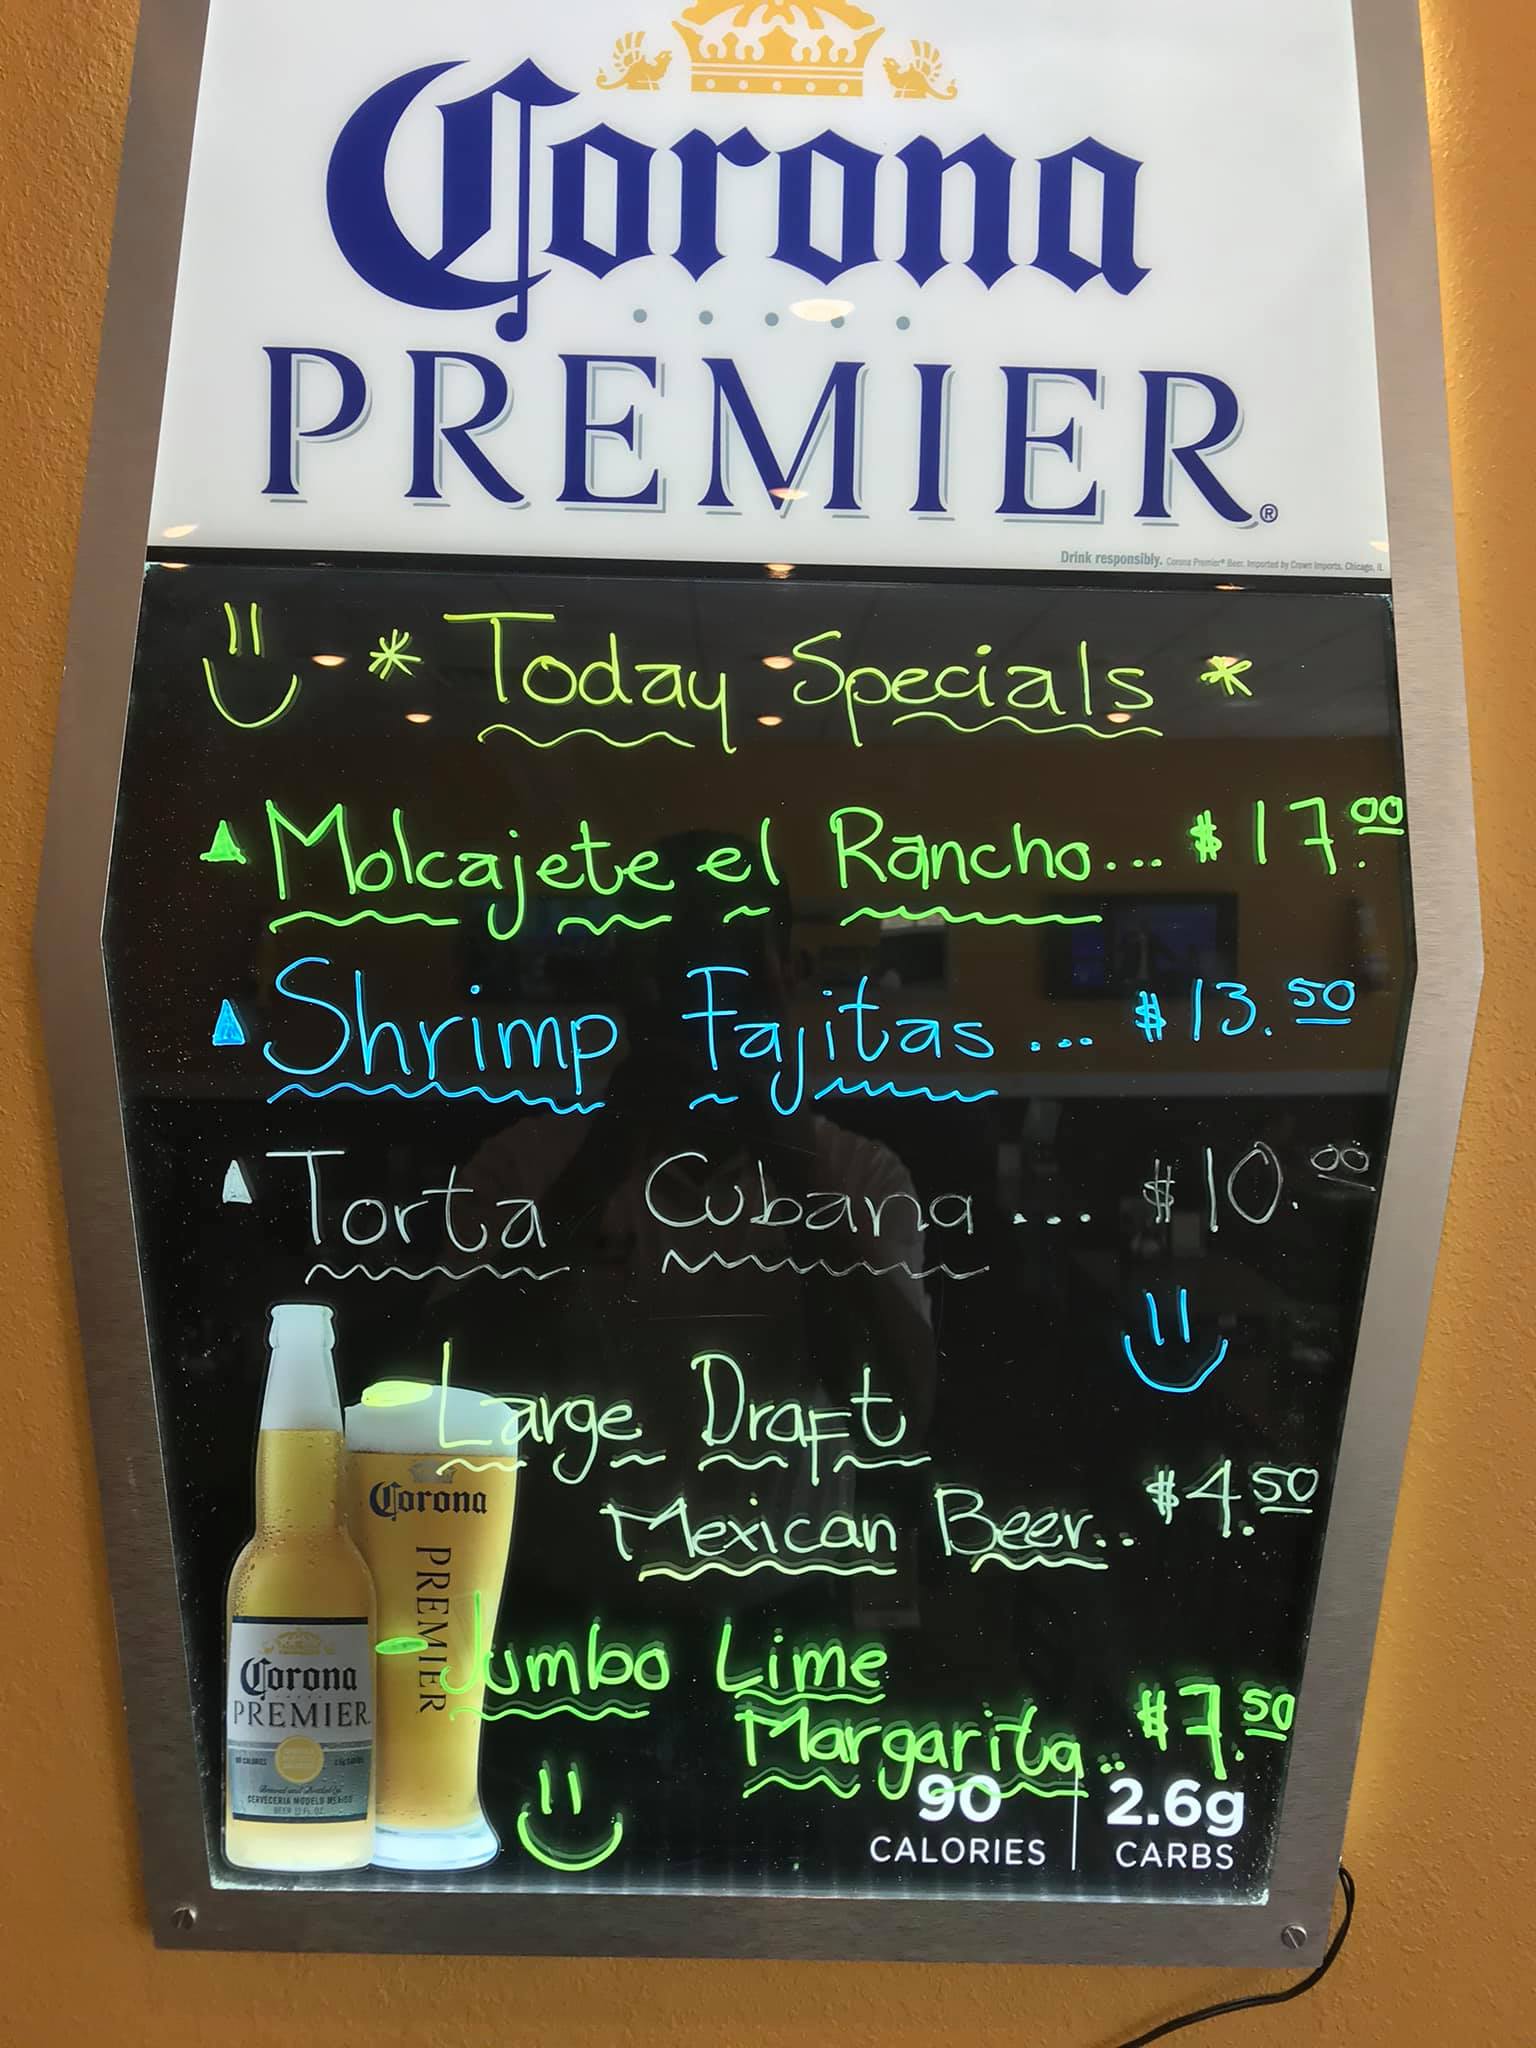 Corona
PREMIER®
Drink responsibly. Corona Premier® Beer. Imported by Crown Imports, Chicago, IL
* Today Specials *
Molcajete el Rancho... $17.00
Shrimp Fajitas ... $13.50
Torta Cubana ... $10.00
- Large Draft
Mexican Beer.. $4.50
- Jumbo Lime
Margarita.. $7.50
Corona
PREMIER
Corona
PREMIER
90 CALORIES
2.6g CARBS
CERVECERIA MODELO MEXICO
BEER 12 FL. OZ.
90
CALORIES
2.6g
CARBS